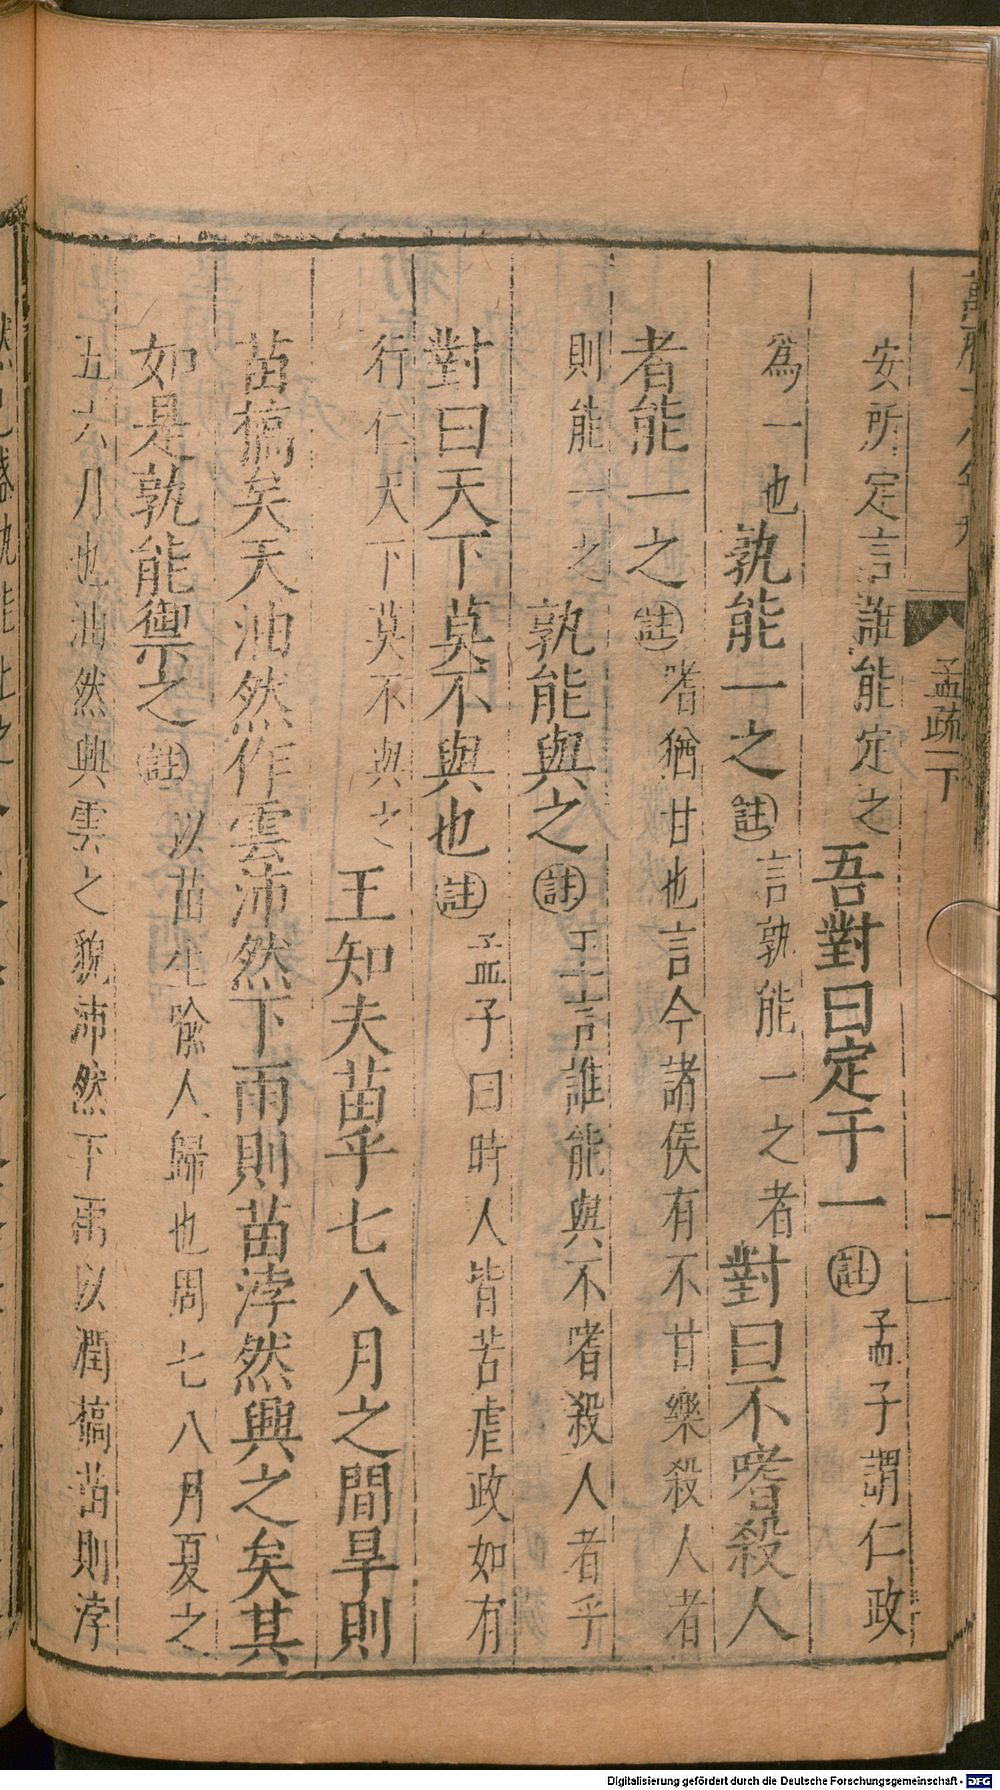 孟疏一下
安所定言誰能定之吾對曰定于一註孟子謂仁政
爲一也孰能一之註言孰能一之者對曰不嗜殺人
者能一之註嗜猶甘也言今諸侯有不甘樂殺人者
則能一之孰能與之註王言誰能與不嗜殺人者乎
對曰天下莫不與也註孟子曰時人皆苦虐政如有
行仁天下莫不與之王知夫苗乎七八月之間旱則
苗槁矣天油然作雲沛然下雨則苗浡然興之矣其
如是孰能禦之註以苗生喻人歸也周七八月夏之
五六月也油然興雲之貌沛然下雨以潤槁苗則浡
Digitalisierung gefördert durch die Deutsche Forschungsgemeinschaft - DFG